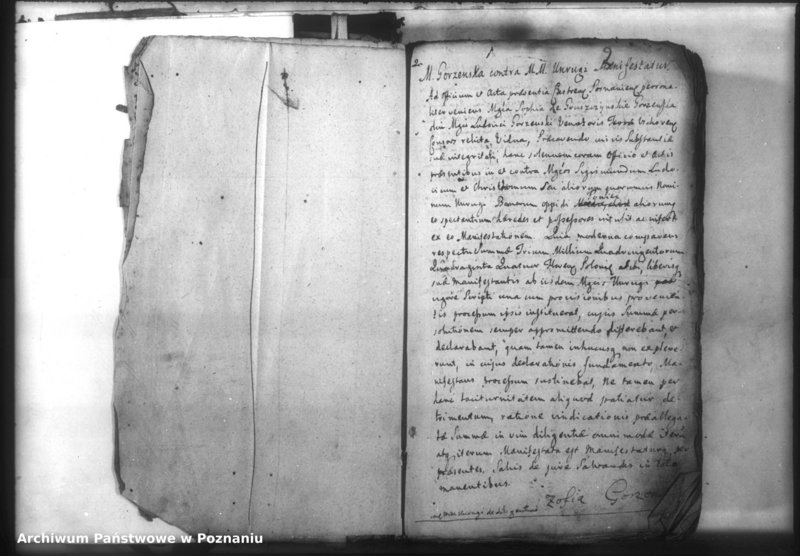 2. 1 2
M. Gorzenska contra M. M. Unrugi Manifestatur
Ad officium et Acta præsentia Castren. Posnanien. persona-
liter veniens Mgca Sophia de Goruszczynskie Gorzenska
olim Mgci Ludovici Gorzenski Venatoris Terræ Wschoven.
Consors relicta Vidua, Præcavendo suis Substantiæ
suæ integritati, hanc solennem coram Officio et Actis
præsentibus in et contra Mgcos Sigismundum Ludo-
vicum et Christophorum seu aliorum quorumvis Nomi-
num Unrugi Bonorum oppidi aliorumq
eo spectantium hæredes et possessores intulit ac
ex eo Manifestationem. Quia moderna comparens
respectu Summæ Trium Millium Quadringentorum
Quadraginta Quatuor floren. Polonic. sibi, liberisq
suis Manifestantis ab iisdem Mgcis Unrugi
vigore Scripti una cum provisionibus provenien-
tis processum ipsis instituerat, cujus Summæ per-
solutionem semper appromittendo differebant, et
declarabant, quam tamen inhucusq non expleve-
runt, in cujus declarationis fundamento, Ma-
nifestans processum sustinebat, Ne tamen per
hanc taciturnitatem aliquod patiatur de-
trimentum, ratione vindicationis præallega-
tæ Summæ in vim diligentiæ omnimodæ iterum
atq iterum Manifestata est Manifestaturq per
præsentes. Salvis de jure Salvandis in toto
manentibus.
Zofia Gorzen
Archiwum Państwowe w Poznaniu